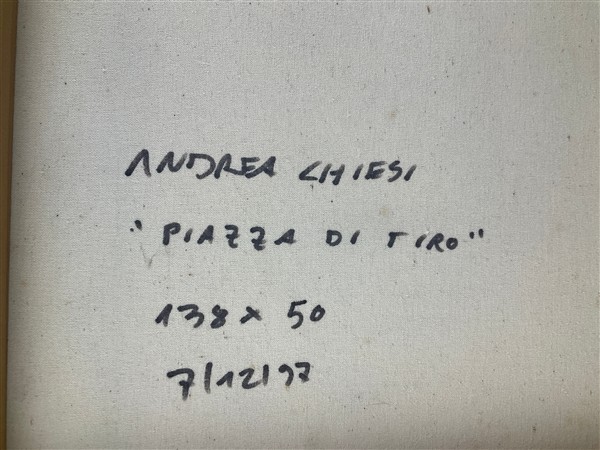 ANDREA CHIESI
"PIAZZA DI TIRO"
138 x 50
7/12/97